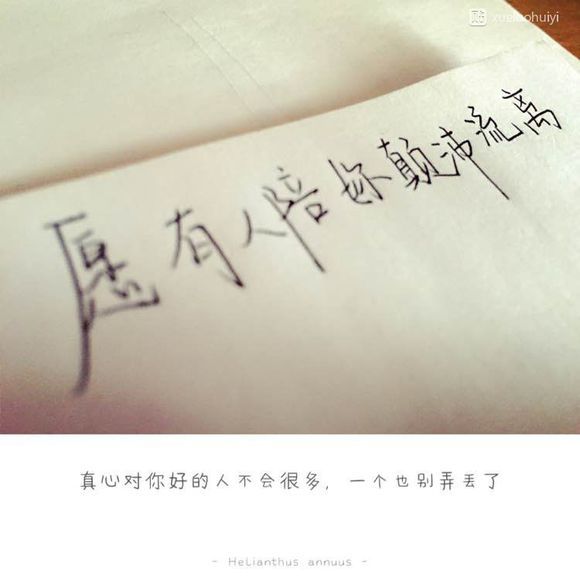 贴 xueluohuiyi
愿有人陪你颠沛流离
真心对你好的人不会很多，一个也别弄丢了
- Helianthus annuus -